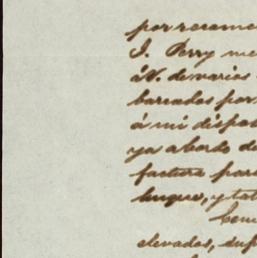 J. Perry me
á V. de varios
barcados por
á mi dispos
ya abordo de
factura para
buque, y tal
elevados, sup